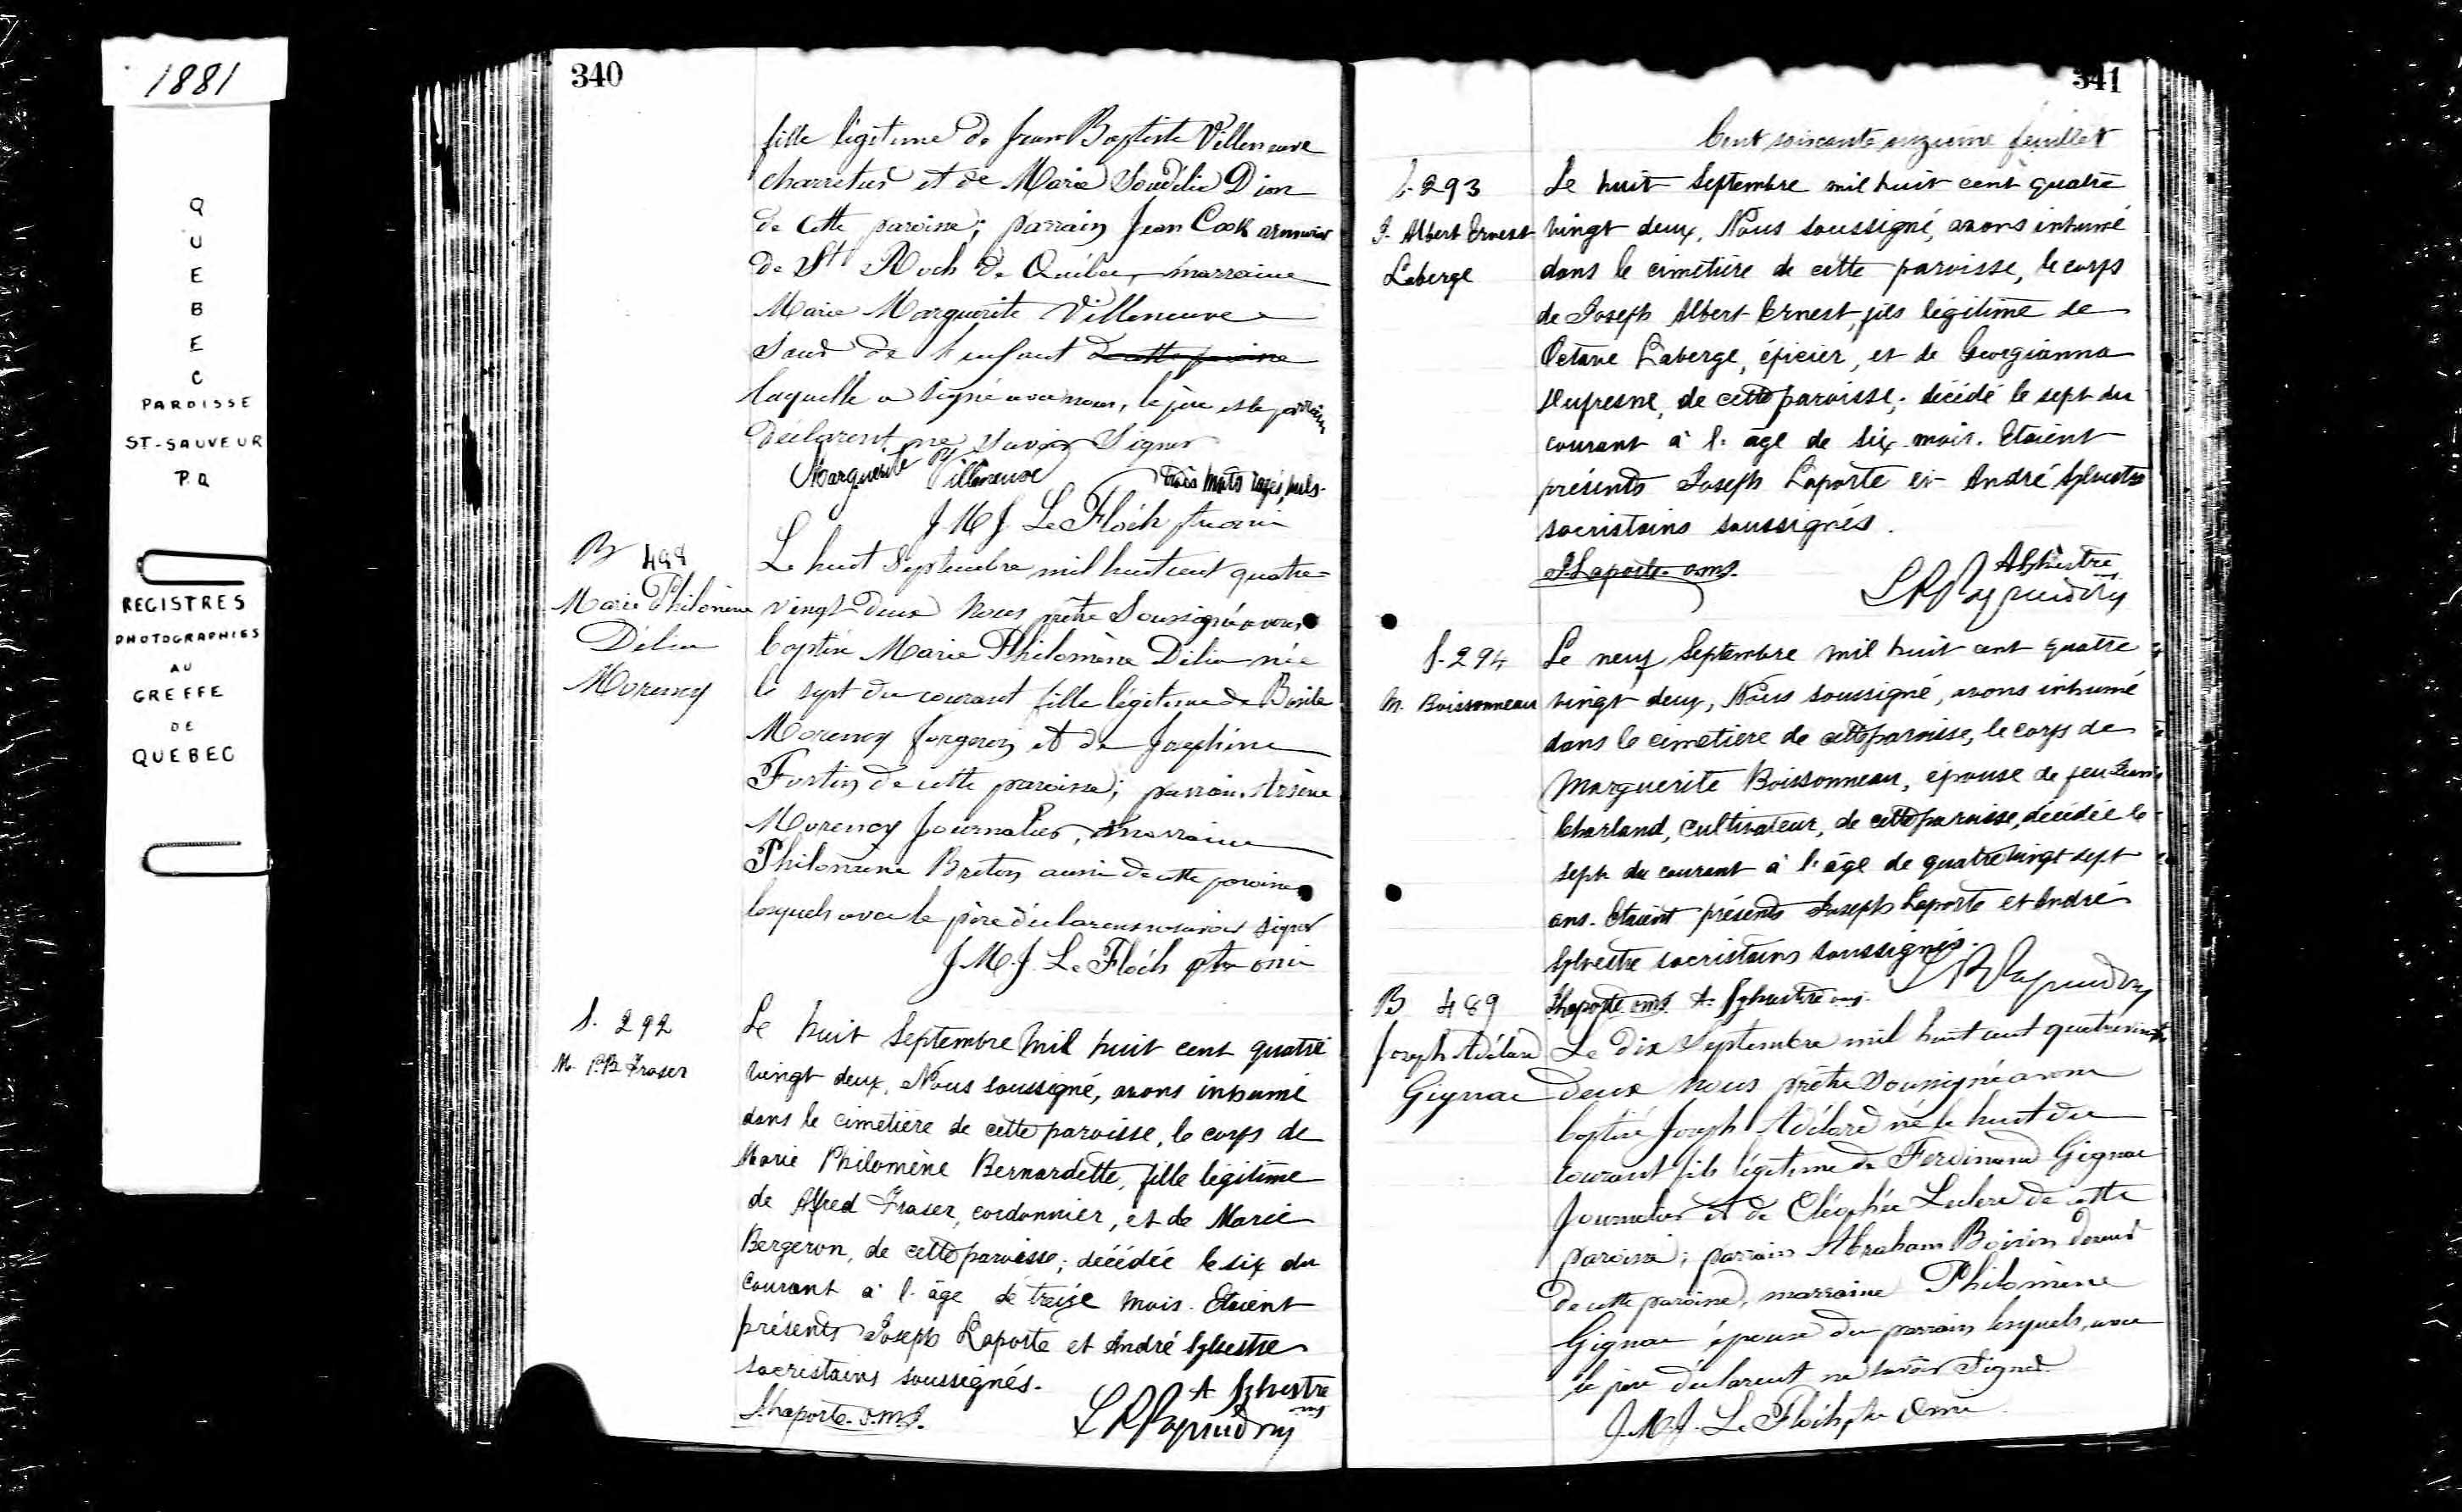 1881
QUEBEC
PAROISSE
ST-SAUVEUR
P.Q
REGISTRES
PHOTOGRAPHIES
AU
GREFFE
DE
QUEBEC
340
fille légitime de Jean Baptiste Villeneuve
charretier et de Marie Dion
de cette paroisse; parrain Jean Cook armurier
de St Roch de Québec, marraine
Marie Marguerite Villeneuve
Sœur de l'enfant de cette paroisse
laquelle a signé avec nous, le père et le parrain
déclarent ne savoir signer
Marguerite Villeneuve
trois mots rayés nuls.
J.M.J. Le Flóch ptre omi
B 498
Marie Philomène
Délia
Morency
Le huit Septembre mil huit cent quatre-
vingt deux Nous prêtre Soussigné avons
baptisé Marie Philomène Délia née
le sept du courant fille légitime de Basile
Morency forgeron et de Joséphine
Fortin de cette paroisse; parrain Arsène
Morency Journalier, marraine
Philomène Breton aussi de cette paroisse
lesquels avec le père déclarent ne savoir signer
J.M.J. Le Flóch ptre omi
S. 292
M. P. B. Fraser
Le huit Septembre mil huit cent quatre
vingt deux, Nous soussigné, avons inhumé
dans le cimetière de cette paroisse, le corps de
Marie Philomène Bernardette, fille légitime
de Alfred Fraser, cordonnier, et de Marie
Bergeron, de cette paroisse; décédée le six du
courant à l'âge de treize mois. Etaient
présents Joseph Laporte et André Sylvestre
sacristains soussignés.
A Sylvestre
J. Laporte. o.m.J.
341
Cent soixante onzième feuillet
S. 293
J. Albert Ernest
Laberge
Le huit Septembre mil huit cent quatre
vingt deux, Nous soussigné, avons inhumé
dans le cimetière de cette paroisse, le corps
de Joseph Albert Ernest, fils légitime de
Octave Laberge, épicier, et de Georgianna
Dufresne, de cette paroisse; décédé le sept du
courant à l'âge de six mois. Etaient
présents Joseph Laporte et André Sylvestre
sacristains soussignés.
J. Laporte. o.m.J.
A Sylvestre
S. 294
M. Boissonneau
Le neuf Septembre mil huit cent quatre
vingt deux, Nous soussigné, avons inhumé
dans le cimetière de cette paroisse, le corps de
Marguerite Boissonneau, épouse de feu
Charland, Cultivateur, de cette paroisse, décédée le
sept du courant à l'âge de quatre vingt sept
ans. Etaient présents Joseph Laporte et André
Sylvestre sacristains soussignés.
J. Laporte o.m.J. A. Sylvestre
B 489
Joseph Adélard
Gignac
Le dix Septembre mil huit cent quatrevingt
deux nous prêtre soussigné avons
baptisé Joseph Adélard né le huit du
courant fils légitime de Ferdinand Gignac
Journalier et de Cléophée Leclerc de cette
paroisse; parrain Abraham Boivin
de cette paroisse, marraine Philomène
Gignac épouse du parrain lesquels, avec
le père déclarent ne savoir signer
J.M.J. Le Flóch ptre omi